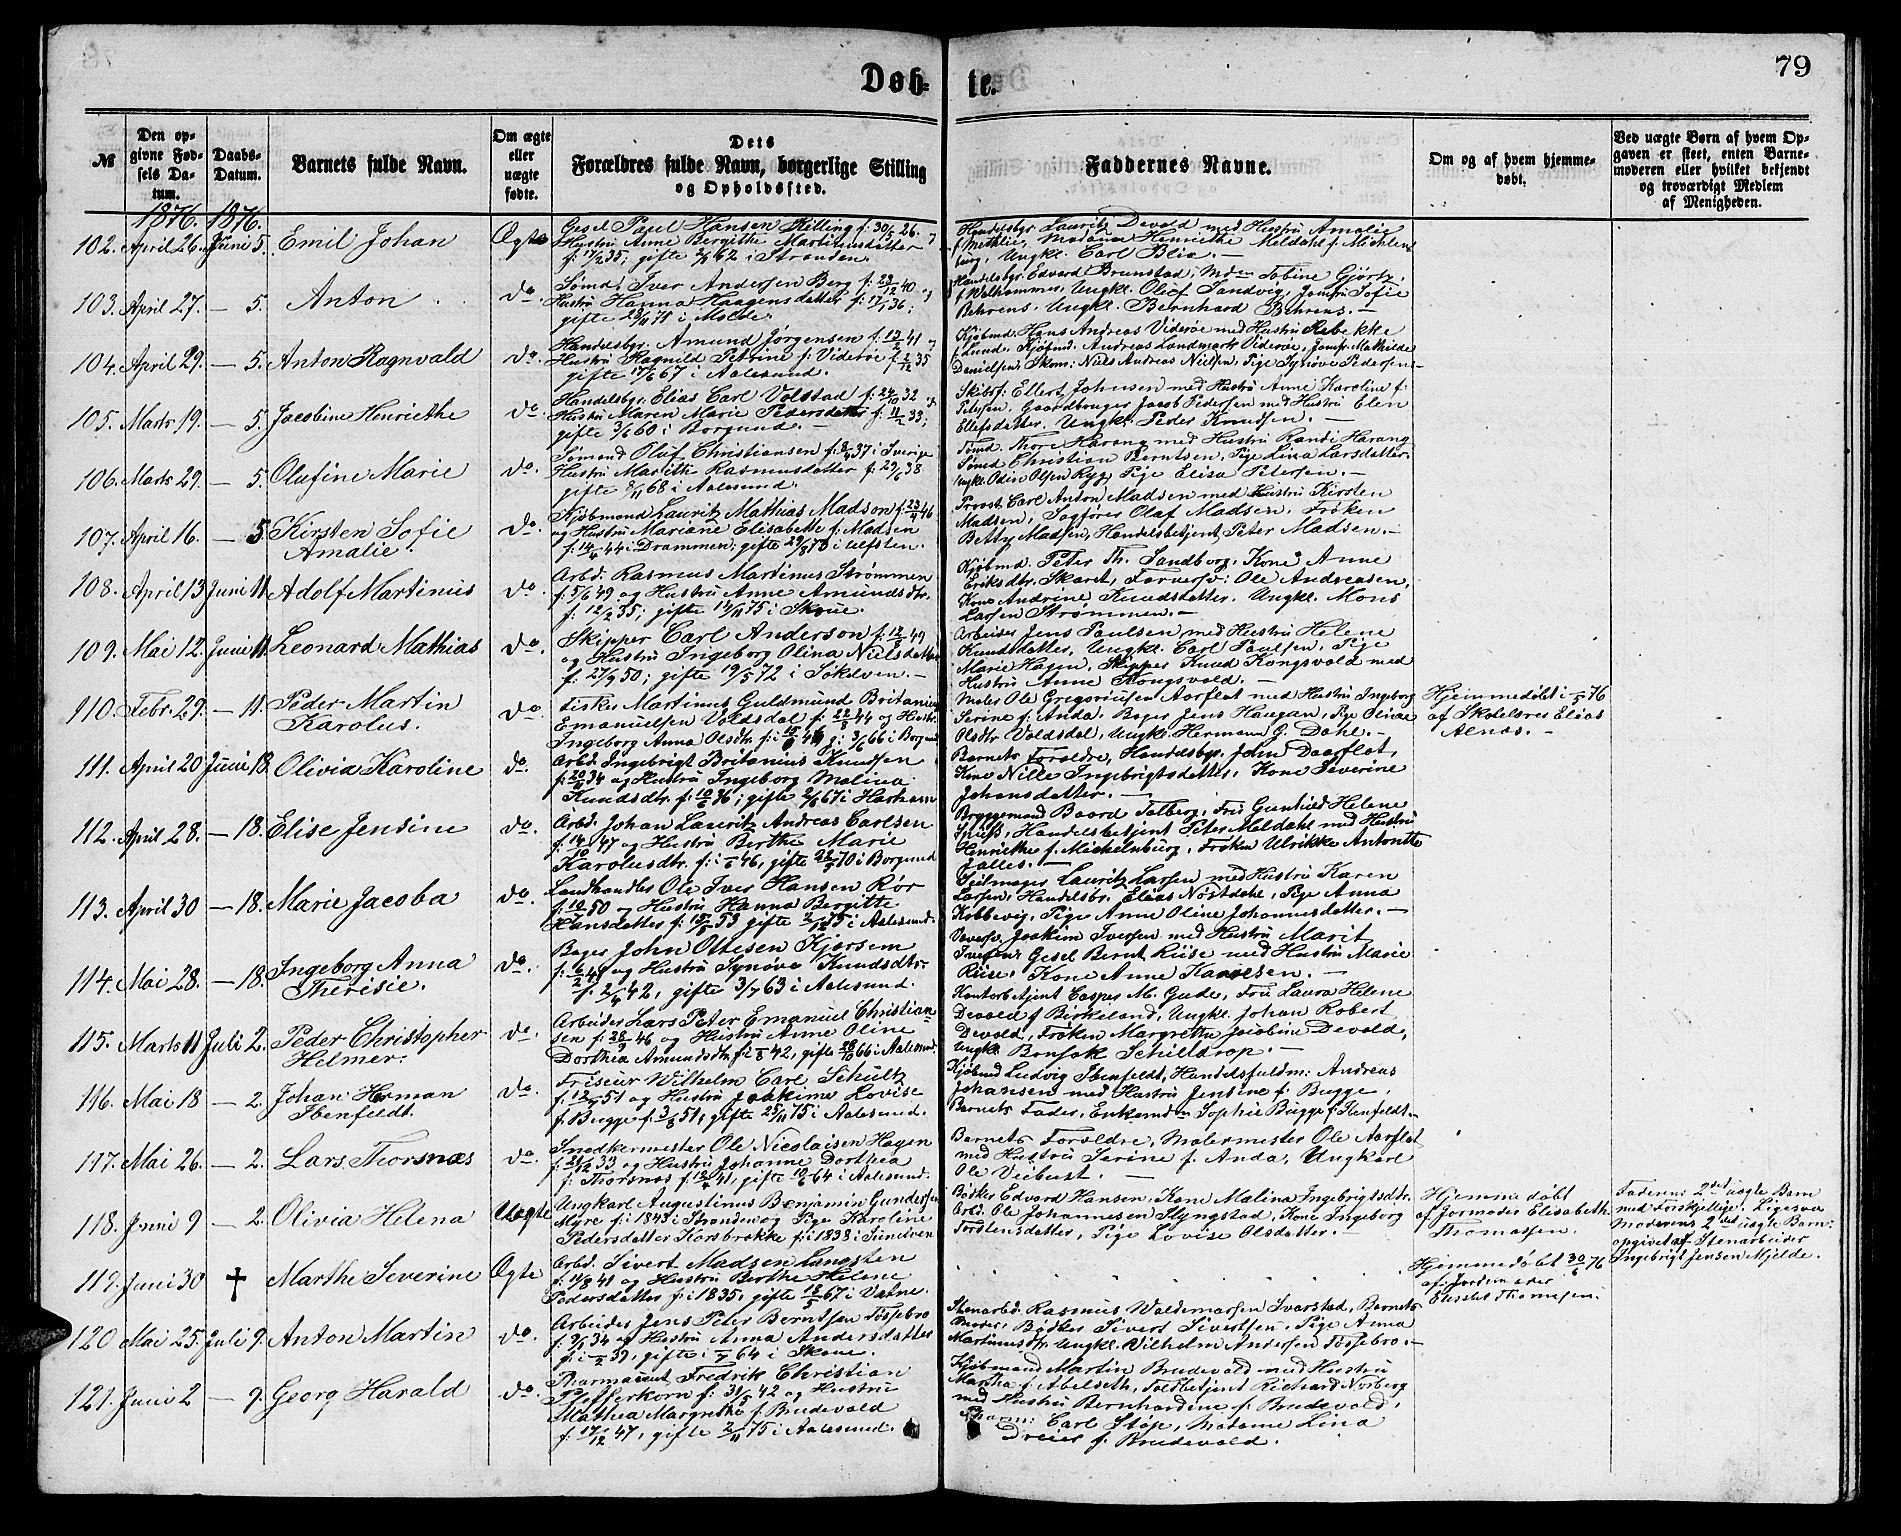 Døb=
te.
79
№
Den op-
givne Fød-
sels Da-
tum.
Daabs-
Datum.
Barnets fulde Navn.
Om ægte
eller
uægte
fødte.
Dets
Forældres fulde Navn, borgerlige Stilling
og Opholdssted.
Faddernes Navne.
Om og af hvem hjemme-
døbt.
Ved uægte Børn af hvem Op-
gaven er skeet, enten Barne-
moderen eller hvilket bekjendt
og troværdigt Medlem
af Menigheden.
1876. 1876.
102. April 26. Juni 5. Emil Johan Ægte
Hansen
Hustru Anne Bergithe Martinusdatter
gifte i Stranden.
Handelsbgr. Lauritz Devold med Hustru Amalie
Ungkl. Carl Blix.
103. April 27. — 5. Anton do.
Sømd. Iver Andersen Berg f: 23/12 40 og
Hustru Hanna Haagensdatter
gifte i Molde.
Handelsbgr. Edvard Brunstad,
Ungkl. Oluf Sandvig, Jomfr. Sofie
Behrens, Ungkl. Bernhard Behrens.
104. April 29. — 5. Anton Ragnvald do.
Handelsbgr. Amund Jørgensen
Hustru Ragnild Petrine f: Viderøe
gifte 17/6 67 i Aalesund.
Kjøbmd. Hans Andreas Viderøe med Hustru Rebekke
f. Lund, Kjøbmd. Andreas Landmark Viderøe, Jomfr. Mathilde
Danielsen, Niels Andreas Nielsen, Pige Synøve Pedersen
105. Marts 19. — 5. Jacobine Henriethe do.
Handelsbgr. Elias Carl Volstad
Hustru Maren Marie Pedersdatter
gifte 3/6 60 i Borgund.
Ellert Johnsen med Hustru Anne Karoline f:
Petersen, Gaardbruger Jacob Pedersen med Hustru Elen
Ellefsdatter, Ungkl. Peder Knudsen.
106. Marts 29. — 5. Olufine Marie do.
Sømand Oluf Christiansen i Sverige
Hustru Marithe Rasmusdatter
gifte 8/11 68 i Aalesund.
Tømd. Thore Harang med Hustru Randi Harang
Sømd. Christian Berntsen, Pige Lina Larsdatter,
Ungkl. Odin Olsen Ryg, Pige Elisa Petersen.
107. April 16. — 5. Kirsten Sofie
Amalie.
do.
Kjøbmand Lauritz Mathias Madson
og Hustru Mariane Elisabethe f: Madsen
i Drammen; gifte
Provst Carl Anton Madsen med Hustru Kirsten
Madsen, Sagfører Olaf Madsen, Frøken
Betty Madsen, Handelsbetjent Peter Madsen.
108. April 13 Juni 11. Adolf Martinus do.
Arbd. Rasmus Martinus Strømmen
f: 5/6 49 og Hustru Anne Amundsdtr.
f: 12/2 35; gifte 14/11 75 i Skoue.
Kjøbmd. Peter Th. Sandborg, Kone Anne
Eriksdtr. Skaret, Ole Andreasen,
Kone Andrine Knudsdatter, Ungkl. Mons
Larsen Strømmen.
109. Mai 12. Juni 11. Leonard Mathias do.
Skipper Carl Anderson
og Hustru Ingeborg Olina Nielsdatter
f: 27/9 50; gifte 19/5 72 i Søkelven.
Arbeider Jens Paulsen med Hustru Helene
Knudsdatter, Ungkl. Carl Paulsen, Pige
Marie Hagen, Skipper Knud Kongsvold med
Hustru Anne Kongsvold.
110. Febr. 29. — 11. Peder Martin
Karolus.
do.
Fisker Martinus Guldmund Britanius
Emanuelsen Voldsdal f: 22/2 44 og Hustr.
Ingeborg Anna Olsdtr. g: 3/6 66 i Borgund
Maler Ole Gregoriusen Aarflot med Hustru Ingeborg
Serine f: Anda, Bager Jens Haugan, Pige Oline
Olsdtr. Voldsdal, Ungkl. Hermann G. Dahl.
Hjemmedøbt 76
af Skolelærer Elias
Alnæs.
111. April 20 Juni 18. Olivia Karoline do.
Arbd. Ingebrigt Britanius Knudsen
og Hustru Ingeborg Malina
Knudsdtr. gifte 2/6 67 i Harham
Barnets Forældre, Handelsbgr. John Daarflot,
Kone Nille Ingebrigtsdatter, Kone Severine
Johansdatter.
112. April 28. — 18. Elise Jensine do.
Arbd. Johan Lauritz Andreas Carlsen
og Hustru Berthe Marie
Karolusdtr. gifte i Borgund
Bryggemand Baard Talberg, Fru Gunhild Helene
Handelsbetjent Peter Meldahl med Hustru
Henriethe f. Michelnburg, Frøken Ulrikke Antonette
113. April 30 — 18. Marie Jacoba do.
Landhandler Ole Iver Hansen Rør
og Hustru Hanna Bergitte
Hansdatter gifte i Aalesund.
Seilmager Lauritz Larsen med Hustru Karen
Larsen, Handelsbr. Elias Nøstdahl, Pige Anna
Kobbevig, Pige Anne Oline Johannesdatter.
114. Mai 28. — 18. Ingeborg Anna
Therisie.
do.
Bager John Ottesen Kjersem
og Hustru Synøve Knudsdtr.
gifte 3/7 63 i Aalesund.
Joakim Iversen med Hustru Marit
Iversen, Gesel Bernt Riise med Hustru Marie
Riise, Kone Anne
115. Marts 11 Juli 2. Peder Christopher
Hilmer.
do.
Arbeider Lars Peter Emanuel Christian-
sen og Hustru Anne Oline
Dorthea Amundsdtr. gifte i Aalesund.
Casper M. Gude, Fru Laura Helene
Devold f: Birkeland, Ungkl. Johan Robert
Devold, Frøken Margrethe Jacobine Devold,
Ungkl. Schieldrop.
116. Mai 18 — 2. Johan Herman
Ibenfeldt.
do.
Friseur Wilhelm Carl Schultz
og Hustru Joakime Lovise
f. Bugge gifte 25/11 75 i Aalesund.
Kjøbmd Ludvig Ibenfeldt, Andreas
Johansen med Hustru Jensine f: Bugge,
Barnets Fader, Sophie Bugge f: Ibenfeldt.
117. Mai 26. — 2. Lars Thorsnæs do.
Snedkermester Ole Nicolaisen Hagen
og Hustru Johanne Dorthea
f: Thorsnæs gifte i Aalesund.
Barnets Forældre, Malermester Ole Aarflot
med Hustru Serine f. Anda, Ungkarl
Ole Veibust.
118. Juni 9 — 2. Olivia Helena Uægte
Ungkarl Augustinus Benjamin Gundersen
Myre f: i 1843 i Stranden og Pige Karoline
Pedersdatter Korsbrække f: i 1838 i Sundlven
Bødker Edvard Hansen, Kone Malina Ingebrigtsdtr.
Arbd. Ole Johannesen Slyngstad, Kone Ingeborg
Torstensdatter, Pige Lovise Olsdatter.
Hjemmedøbt
af Jormoder Elisabeth
Thomassen.
Faderens 2det uægte Barn
med Forskjellige. Ligesaa
Moderens 2det uægte Barn.
opgivet af Stenarbeider
Ingebrigt Jensen Mjelde.
119. Juni 30 † Marthe Severine Ægte
Arbd. Sivert Madsen Langsten
f: 11/8 41 og Hustru Berthe Helene
Pedersdatter f: i 1835, gifte 18/5 67 i Vatne.
Hjemmedøbt 30/6 76
af: Jordemoder
Thomasen.
120 Mai 25. Juli 9. Anton Martin do.
Arbeider Jens Peter Berntsen Fossebro
og Hustru Anna Andersdatter
gifte i 64 i Skoue.
Stenarbd. Rasmus Waldemarsen Svarstad, Barnets
Moder, Bødker Sivert Sivertsen, Pige Anna
Martinusdtr. Ungkl. Vilhelm Andersen Fossebro.
121. Juni 2 — 9. Georg Harald do.
Pharmaceut Fredrik Christian
Pfefferkorn f: 31/5 42 og Hustru
Mathea Margrethe f. Brudevold
f: 17/12 47, gifte 2/11 75 i Aalesund.
Kjøbmand Martin Brudevold med Hustru
Martha f: Abelseth, Toldbetjent Richard Norberg
med Hustru Bernhardine f: Brudevold,
Pharm: Carl Støp, Madame Lina
Dreier f. Brudevold.